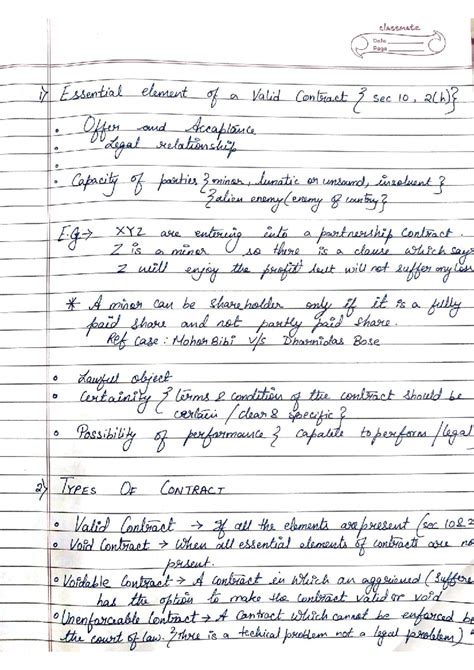 classmate
Date
Page
1) Essential element of a Valid Contract { sec 10, 2(h)}
• Offer and Accaptance
• Legal relationship
•
• Capacity of parties { minor, lunatic or unsound, insolvent }
{ alien enemy (enemy of country }
E.g → XYZ are entering into a partnership contract.
Z is a minor so there is a clause which says
Z will enjoy the profit but will not suffer any loss
* A minor can be shareholder only if it is a fully
paid share and not partly paid share.
Ref case: Mohor Bibi v/s Dharmidas Bose
• Lawful object
• Certainity { terms & condition of the contract should be
certain / clear & specific }
• Possibility of performance { capable to perform / legal
2) TYPES OF CONTRACT
• Valid Contract → If all the elements are present (sec 10 & 2
• Void Contract → When all essential elements of contracts are no
present.
• Voidable Contract → A contract in which an aggrieved (suffere
has the option to make the contract valid or void
• Unenforceable Contract → A contract which cannot be enforced be
the court of law. { Thre is a techical problem not a legal problem }